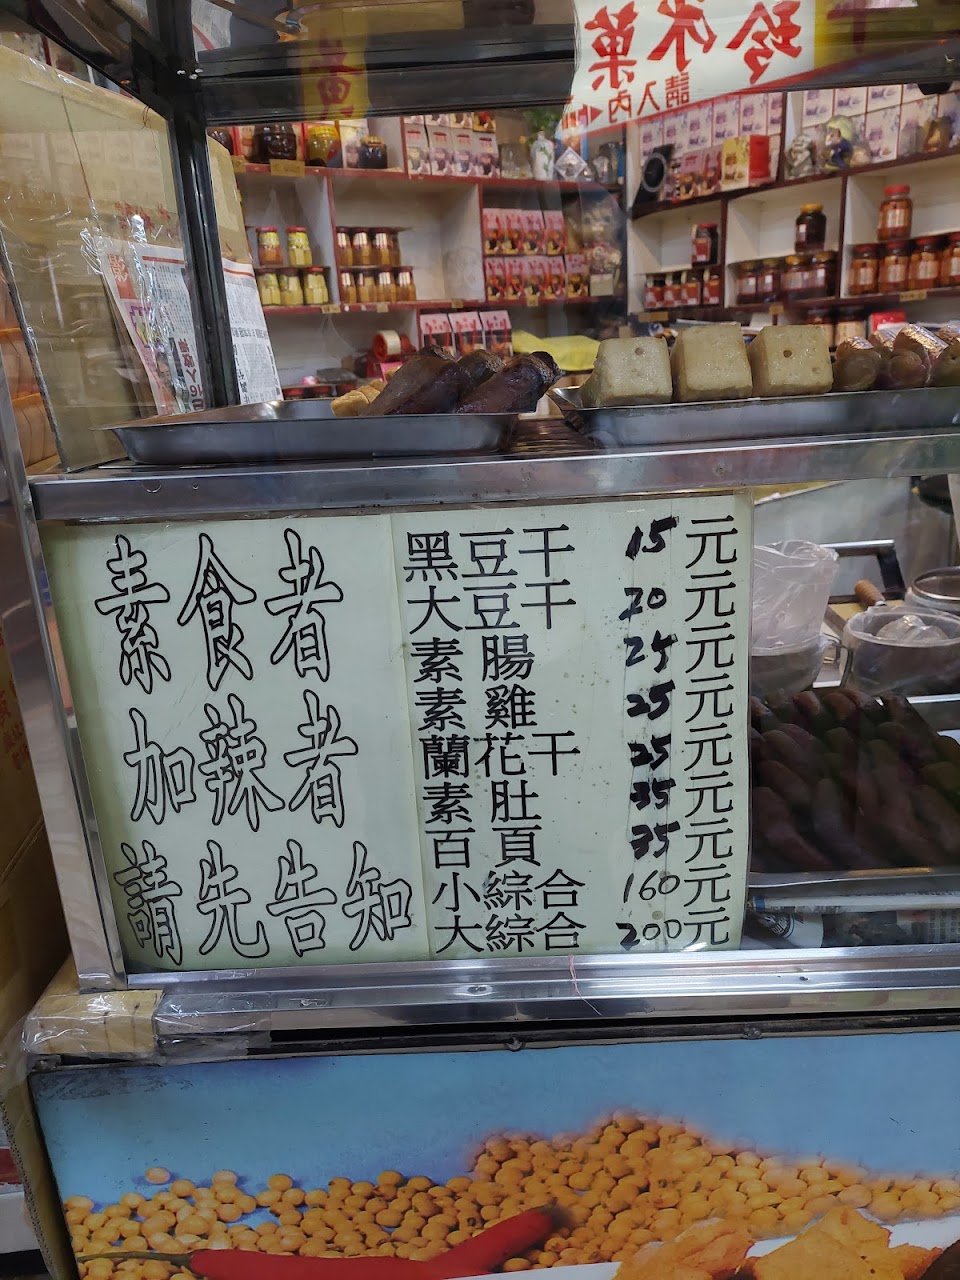 珍冰菓
請入內
素食者
加辣者
請先告知
黑豆干 15元
大豆干 20元
素腸 25元
素雞 25元
蘭花干 25元
素肚 35元
百頁 35元
小綜合 160元
大綜合 200元